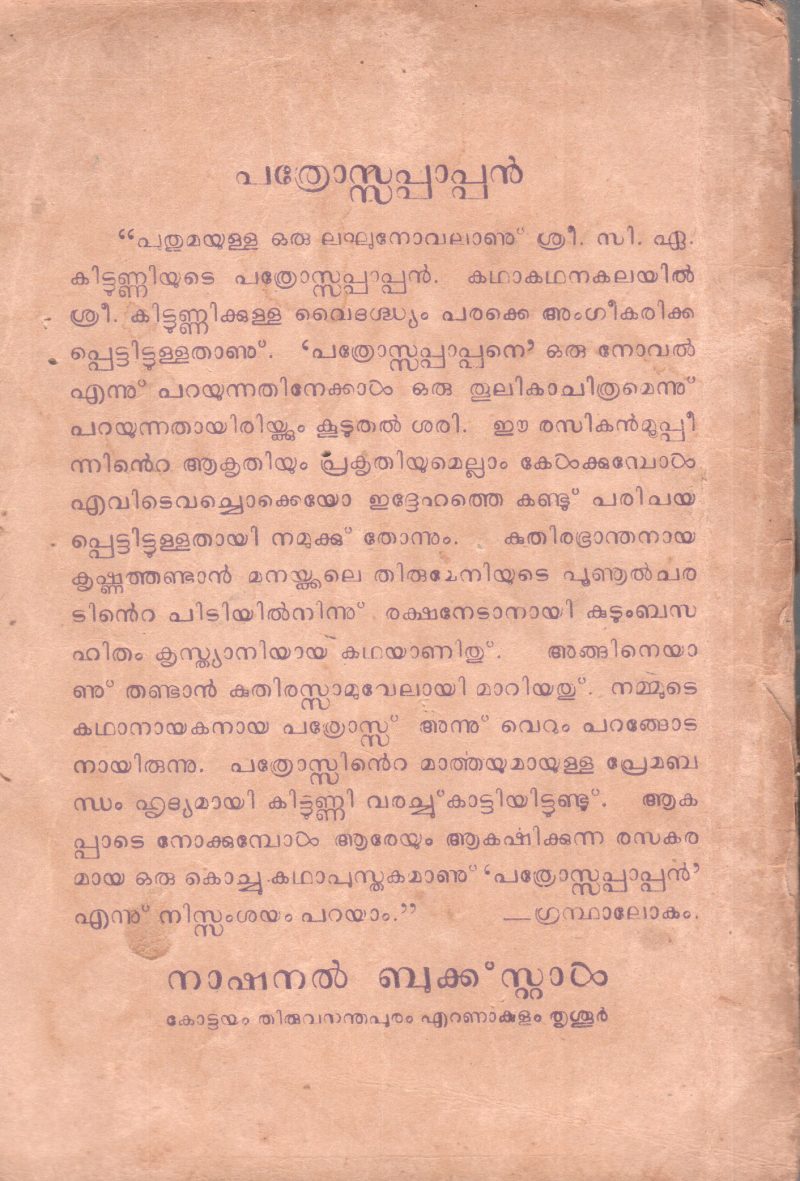 പത്രോസ്സപ്പാപ്പൻ
“പുതുമയുള്ള ഒരു ലഘുനോവലാണു് ശ്രീ. സി. ഏ.
കിട്ടുണ്ണിയുടെ പത്രോസ്സപ്പാപ്പൻ. കഥാകഥനകലയിൽ
ശ്രീ. കിട്ടുണ്ണിക്കുള്ള വൈദഗ്ദ്ധ്യം പരക്കെ അംഗീകരിക്ക
പ്പെട്ടിട്ടുള്ളതാണു്. ‘പത്രോസ്സപ്പാപ്പനെ’ ഒരു നോവൽ
എന്നു് പറയുന്നതിനേക്കാൾ ഒരു തൂലികാചിത്രമെന്നു്
പറയുന്നതായിരിയ്ക്കും കൂടുതൽ ശരി. ഈ രസികൻമൂപ്പീ
ന്നിൻെറ ആകൃതിയും പ്രകൃതിയുമെല്ലാം കേൾക്കുമ്പോൾ
എവിടെവച്ചൊക്കെയോ ഇദ്ദേഹത്തെ കണ്ടു് പരിചയ
പ്പെട്ടിട്ടുള്ളതായി നമുക്കു് തോന്നും. കുതിരഭ്രാന്തനായ
കൃഷ്ണത്തണ്ടാൻ മനയ്ക്കലെ തിരുമേനിയുടെ പൂണൂൽചര
ടിൻെറ പിടിയിൽനിന്നു് രക്ഷനേടാനായി കുടുംബസ
ഹിതം കൃസ്ത്യാനിയായ കഥയാണിതു്. അങ്ങിനെയാ
ണു് തണ്ടാൻ കുതിരസ്സാമുവേലായി മാറിയതു്. നമ്മുടെ
കഥാനായകനായ പത്രോസ്സ് അന്നു് വെറും പറങ്ങോട
നായിരുന്നു. പത്രോസ്സിൻെറ മാർത്തയുമായുള്ള പ്രേമബ
ന്ധം ഹൃദ്യമായി കിട്ടുണ്ണി വരച്ചു്കാട്ടിയിട്ടുണ്ടു്. ആക
പ്പാടെ നോക്കുമ്പോൾ ആരേയും ആകർഷിക്കുന്ന രസകര
മായ ഒരു കൊച്ചു കഥാപുസ്തകമാണു് ‘പത്രോസ്സപ്പാപ്പൻ’
എന്നു് നിസ്സംശയം പറയാം.” —ഗ്രന്ഥാലോകം.
നാഷനൽ ബുക്ക് സ്റ്റാൾ
കോട്ടയം തിരുവനന്തപുരം എറണാകുളം തൃശൂർ